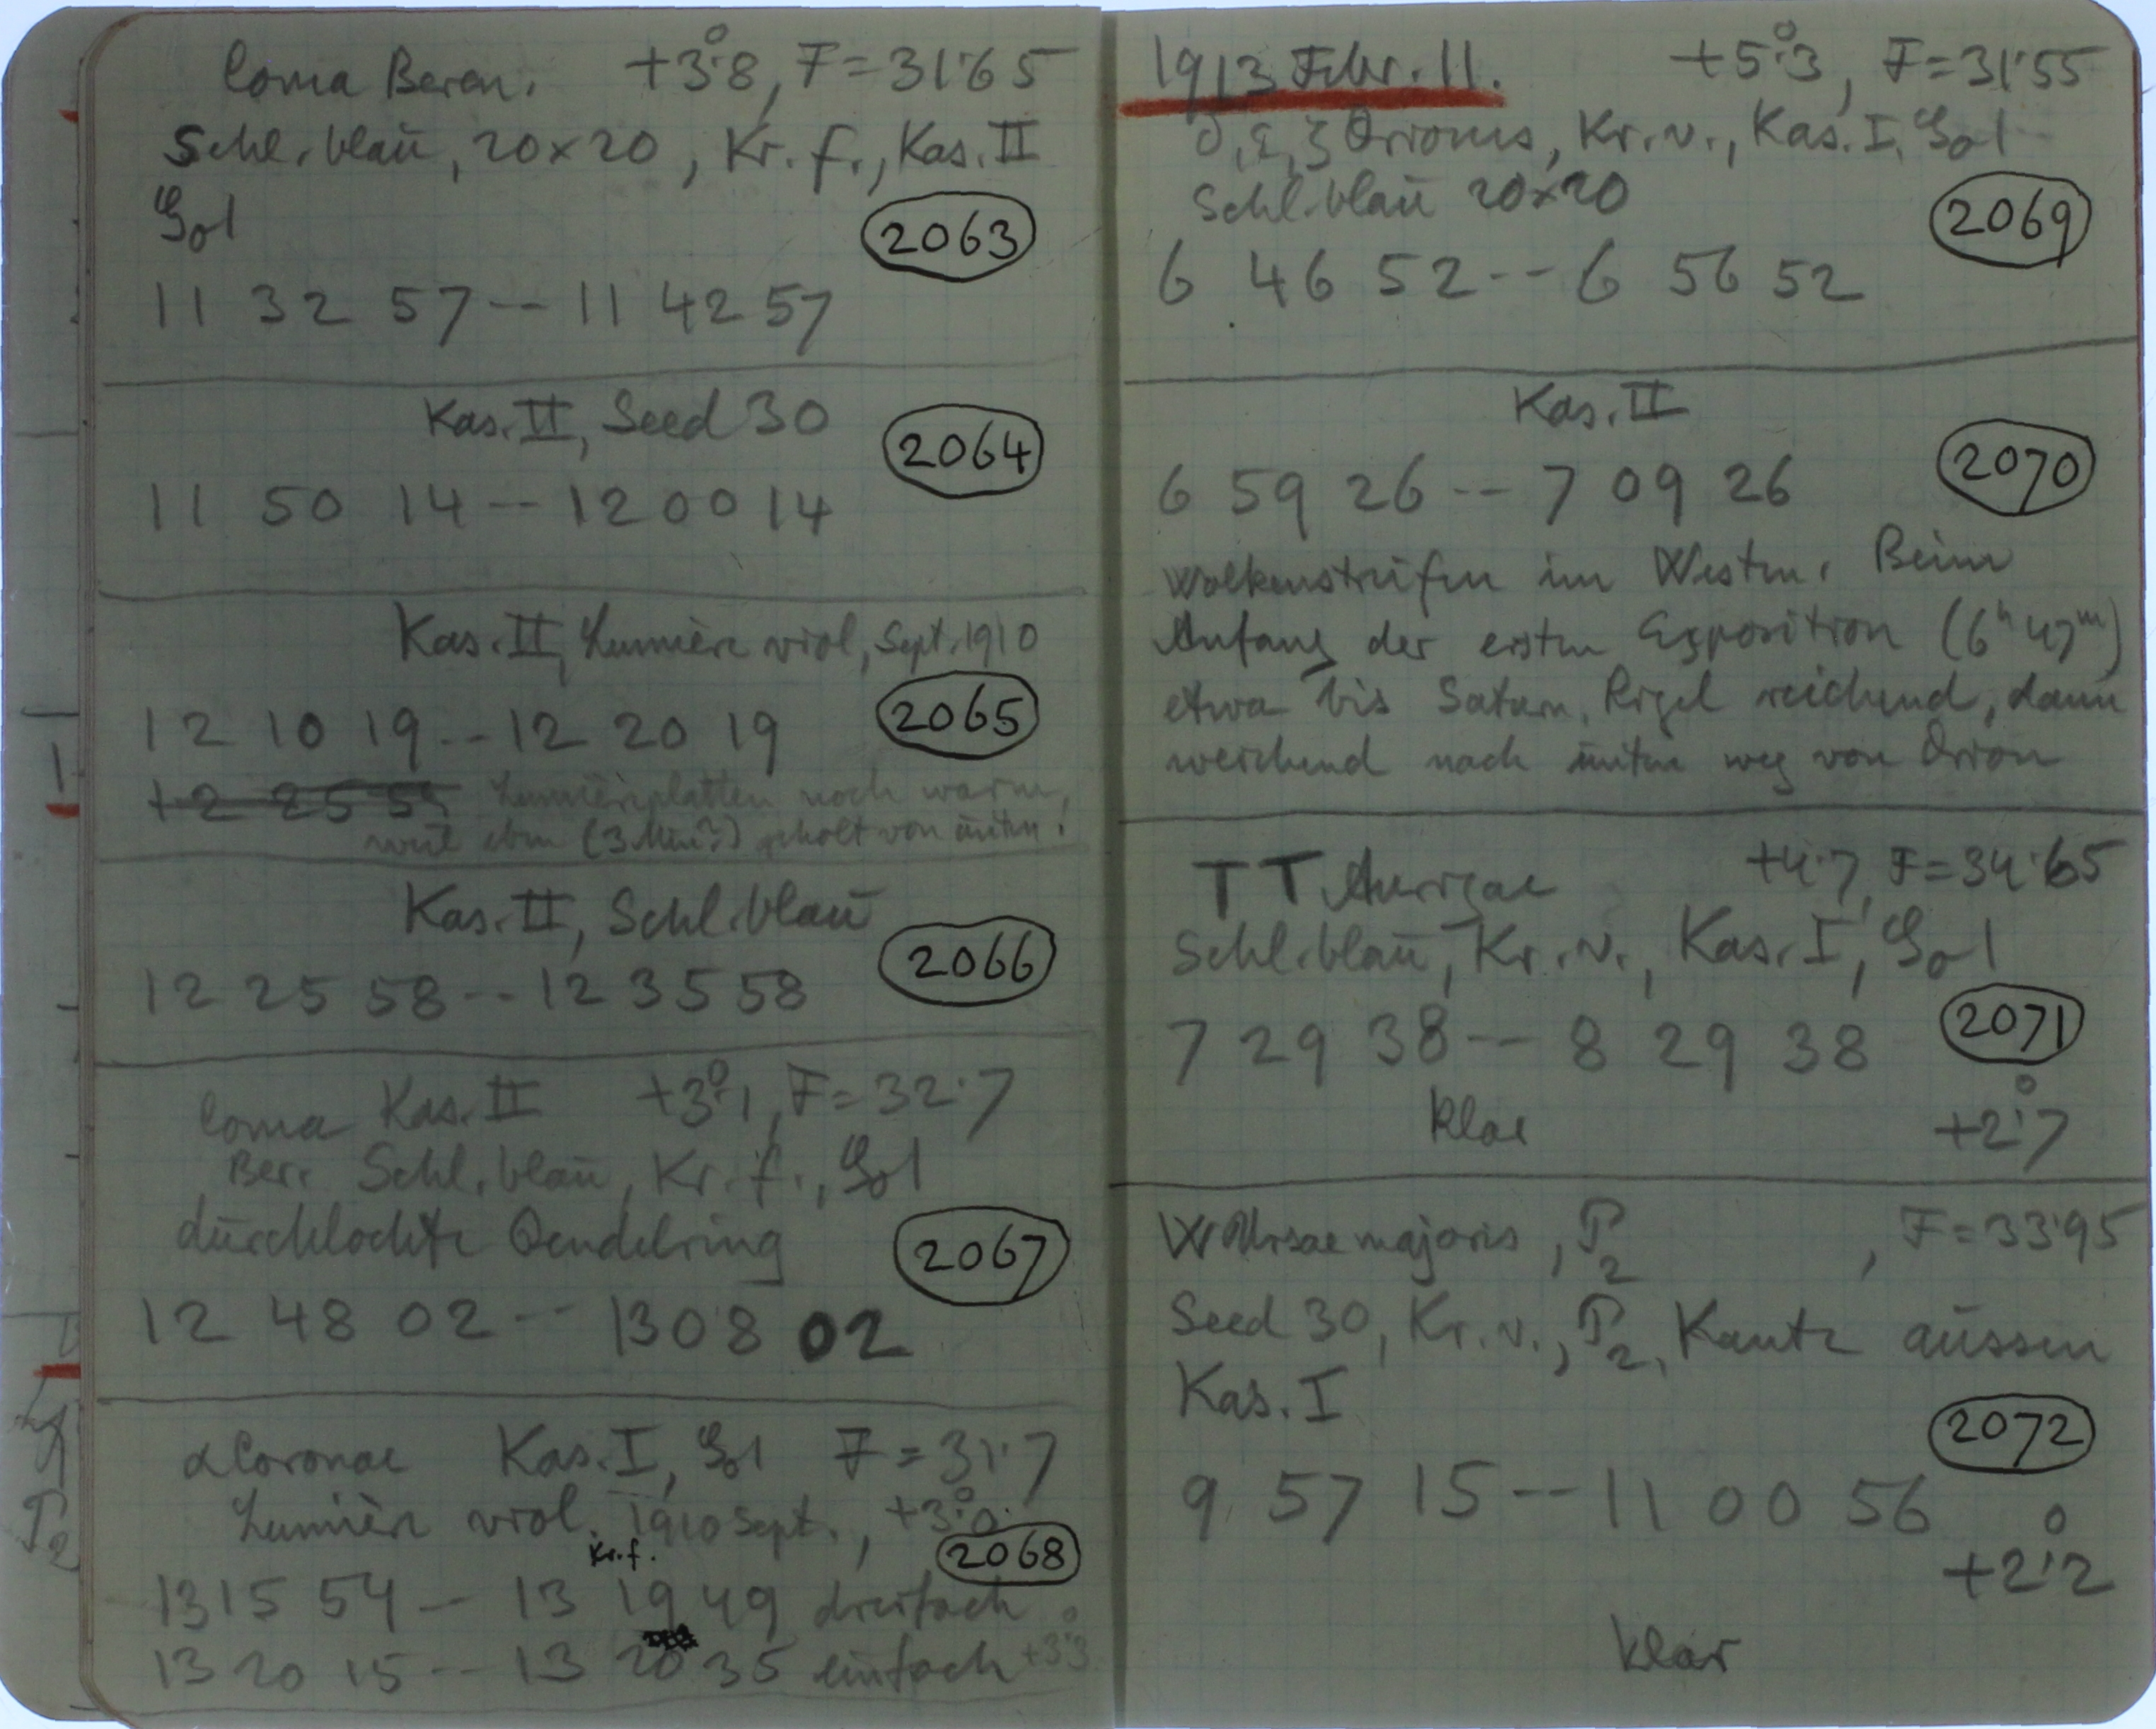 Coma Beren. +3°.8, F=31.65
Schl. blau, 20×20, Kr. f., Kas. II
2063
11 32 57 -- 11 42 57
Kas. II, Seed 30
2064
11 50 14 -- 12 00 14
Kas. II, Lumière viol, Sept. 1910
12 10 19 -- 12 20 19
2065
12 25 55 Lumièreplatten noch warm,
weil eben (3 Min?) geholt von unten.
Kas. II, Schl. blau
2066
12 25 58 -- 12 35 58
Coma Kas. II +3°.1, F=32.7
Ber. Schl. blau, Kr. f.,
durchlochte
2067
12 48 02 -- 13 08 02
α Coronae Kas. I, F=31.7
Lumière viol. 1910 Sept., +3°.0
Kr. f.
2068
13 15 54 -- 13 19 49 dreifach
13 20 15 -- 13 20 35 einfach +3°.3
1913 Febr. 11. +5°.3, F=31.55
δ, ε, ζ Orionis, Kr. v., Kas. I,
Schl. blau 20×20
2069
6 46 52 -- 6 56 52
Kas. II
2070
6 59 26 -- 7 09 26
Wolkenstreifen im Westen. Beim
Anfang der ersten Exposition (6h 47m)
etwa bis Saturn, Rigel reichend, dann
weichend nach unten weg von Orion
TT Aurigae +4.7, F=34.65
Schl. blau, Kr. v., Kas. I,
2071
7 29 38 -- 8 29 38
klar +2°.7
W Ursae majoris, P2, F=33.95
Seed 30, Kr. v., P2, Kante aussen
Kas. I
2072
9 57 15 -- 11 00 56
+2°.2
klar
P2